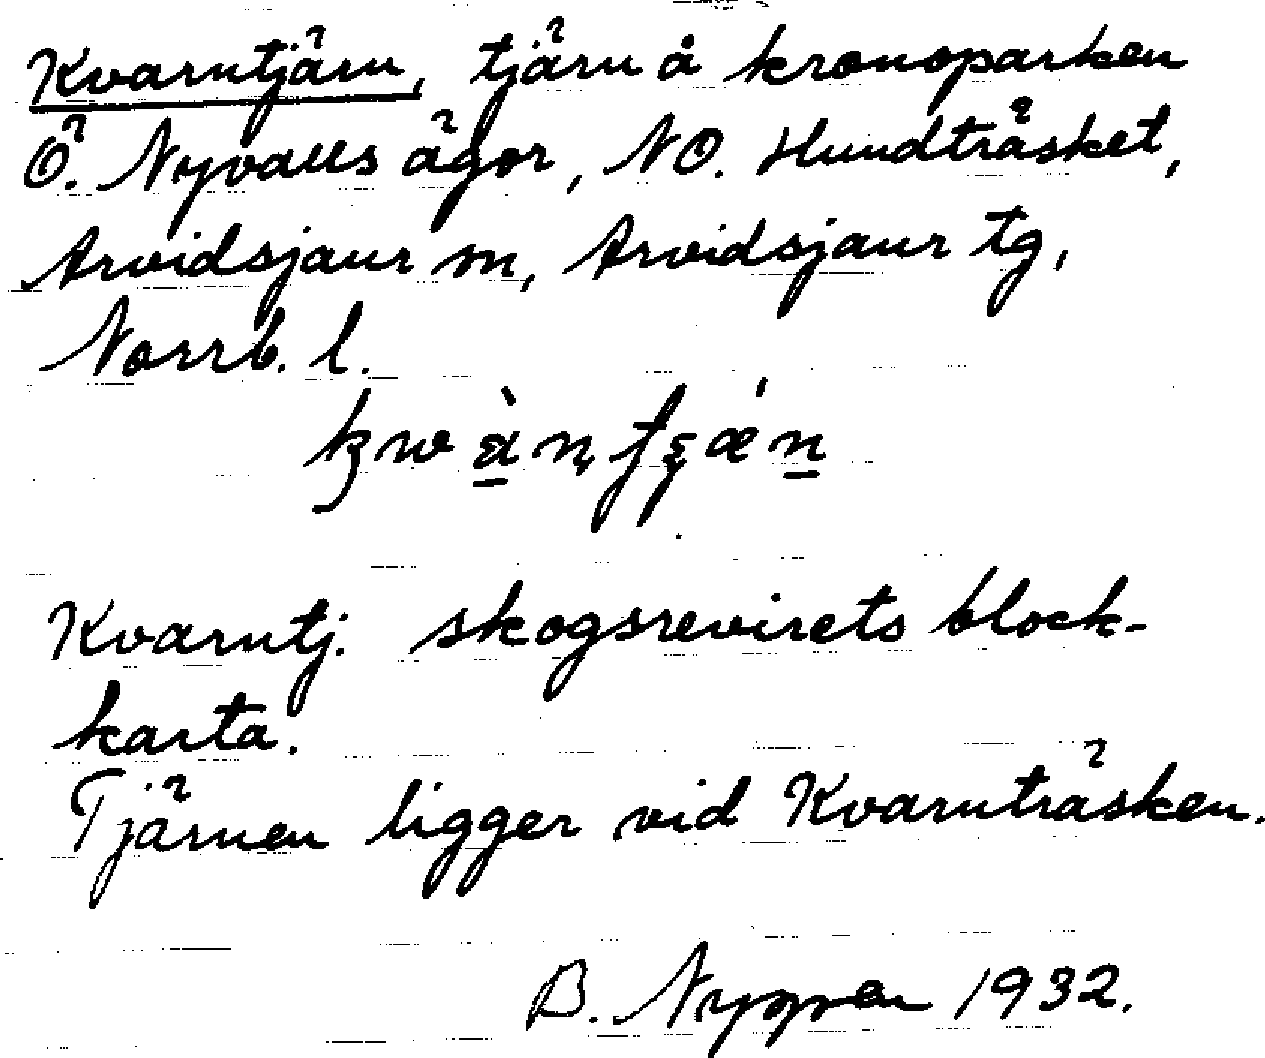 Kvarntjärn, tjärn å kronoparken
Ö. Nyvalls ägor, NO. Hundträsket,
Arvidsjaur sn, Arvidsjaur tg,
Norrb. l.
Kvarntj. skogsrevirets block-
karta.
Tjärnen ligger vid Kvarnträsken.
B. Nygren 1932.